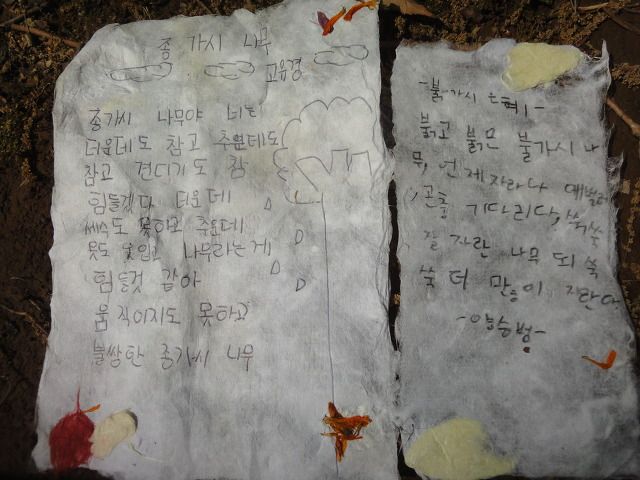 종가시 나무
고유경
종가시 나무야 너는
더운데도 참고 추운데도
참고 견디기도 참
힘들겠다 더운데
세수도 못하고 추운데
옷도 못입고 나무라는게
힘들것 같아
움직이지도 못하고
불쌍한 종가시 나무
-붉가시
붉고 붉은 붉가시 나
무, 언제자라나
곤충 기다리다, 쑥쑥
잘 자란 나무 되 쑥
쑥 더 많이 자란다